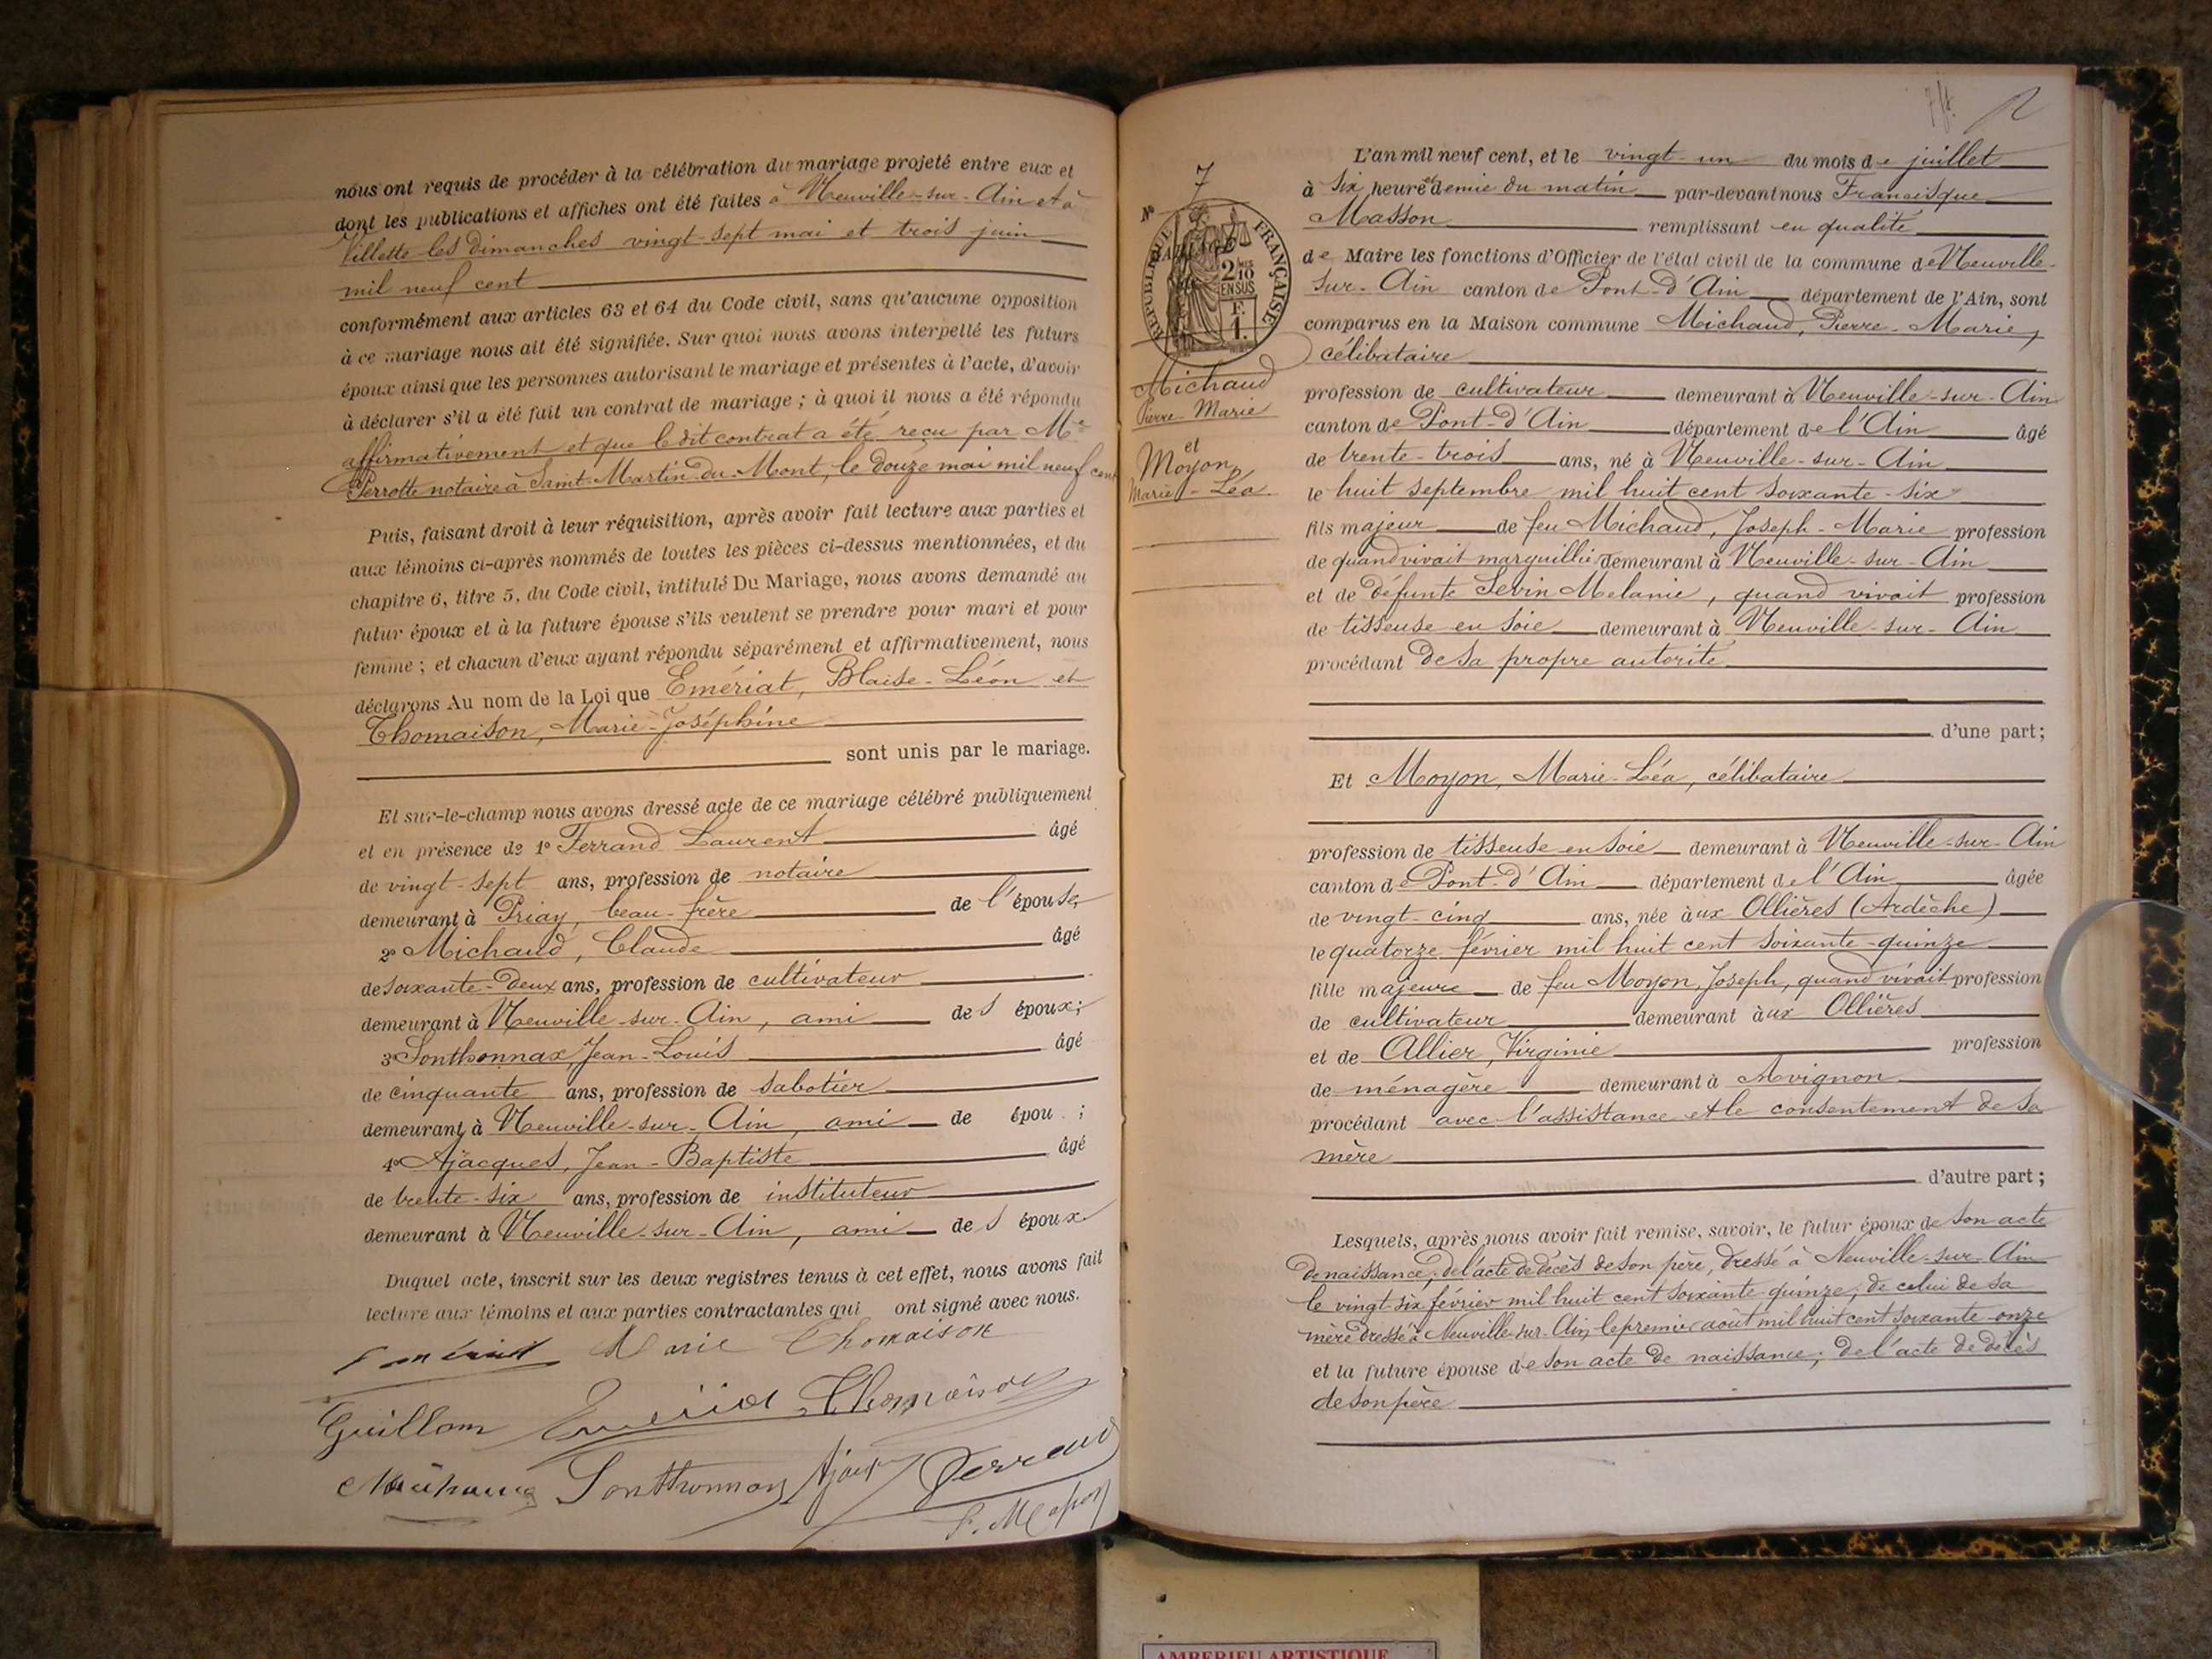 nous ont requis de procéder à la célébration du mariage projeté entre eux et
dont les publications et affiches ont été faites à Neuville-sur-Ain et à
Villette les dimanches vingt-sept mai et trois juin
mil neuf cent
conformément aux articles 63 et 64 du Code civil, sans qu'aucune opposition
à ce mariage nous ait été signifiée. Sur quoi nous avons interpellé les futurs
époux ainsi que les personnes autorisant le mariage et présentes à l'acte, d'avoir
à déclarer s'il a été fait un contrat de mariage ; à quoi il nous a été répondu
affirmativement et que le dit contrat a été reçu par Me
Perrotte notaire à Saint-Martin-du-Mont, le douze mai mil neuf cent
Puis, faisant droit à leur réquisition, après avoir fait lecture aux parties et
aux témoins ci-après nommés de toutes les pièces ci-dessus mentionnées, et du
chapitre 6, titre 5, du Code civil, intitulé Du Mariage, nous avons demandé au
futur époux et à la future épouse s'ils veulent se prendre pour mari et pour
femme ; et chacun d'eux ayant répondu séparément et affirmativement, nous
déclarons Au nom de la Loi que Emériat, Blaise-Léon et
Thomaison, Marie-Joséphine
sont unis par le mariage.
Et sur-le-champ nous avons dressé acte de ce mariage célébré publiquement
et en présence de 1° Ferrand Laurent âgé
de vingt-sept ans, profession de notaire
demeurant à Priay, beau-frère de l'épouse,
2° Michaud, Claude âgé
de soixante-deux ans, profession de cultivateur
demeurant à Neuville-sur-Ain, ami des époux ;
3° Sonthonnax, Jean-Louis âgé
de cinquante ans, profession de sabotier
demeurant à Neuville-sur-Ain, ami de épou ;
4° Ajacques, Jean-Baptiste âgé
de trente-six ans, profession de instituteur
demeurant à Neuville-sur-Ain, ami des époux
Duquel acte, inscrit sur les deux registres tenus à cet effet, nous avons fait
lecture aux témoins et aux parties contractantes qui ont signé avec nous.
Emériat Marie Thomaison
Guillon Emériat Thomaison
Michaud Sonthonnax Ajacques Ferrand
F. Masson
7
N°
RÉPUBLIQUE FRANÇAISE
2/10
EN SUS
F.
1.
Michaud
Pierre-Marie
et
Moyon,
Marie-Léa
L'an mil neuf cent, et le vingt-un du mois de juillet
à six heure et demie du matin par-devant nous Francisque
Masson remplissant en qualité
de Maire les fonctions d'Officier de l'état civil de la commune de Neuville-
sur-Ain canton de Pont-d'Ain département de l'Ain, sont
comparus en la Maison commune Michaud, Pierre-Marie,
célibataire
profession de cultivateur demeurant à Neuville-sur-Ain
canton de Pont-d'Ain département de l'Ain âgé
de trente-trois ans, né à Neuville-sur-Ain
le huit septembre mil huit cent soixante-six
fils majeur de feu Michaud, Joseph-Marie profession
de quand vivait marguillier demeurant à Neuville-sur-Ain
et de défunte Sevin Melanie, quand vivait profession
de tisseuse en soie demeurant à Neuville-sur-Ain
procédant de sa propre autorité
d'une part ;
Et Moyon, Marie-Léa, célibataire
profession de tisseuse en soie demeurant à Neuville-sur-Ain
canton de Pont-d'Ain département de l'Ain âgée
de vingt-cinq ans, née aux Ollières (Ardèche)
le quatorze février mil huit cent soixante-quinze
fille majeure de feu Moyon, Joseph, quand vivait profession
de cultivateur demeurant aux Ollières
et de Allier, Virginie profession
de ménagère demeurant à Avignon
procédant avec l'assistance et le consentement de sa
mère
d'autre part ;
Lesquels, après nous avoir fait remise, savoir, le futur époux de son acte
de naissance ; de l'acte de décès de son père, dressé à Neuville-sur-Ain
le vingt-six février mil huit cent soixante-quinze ; de celui de sa
mère dressé à Neuville-sur-Ain, le premier août mil huit cent soixante-onze
et la future épouse de son acte de naissance ; de l'acte de décès
de son père
AMBERIEU ARTISTIQUE